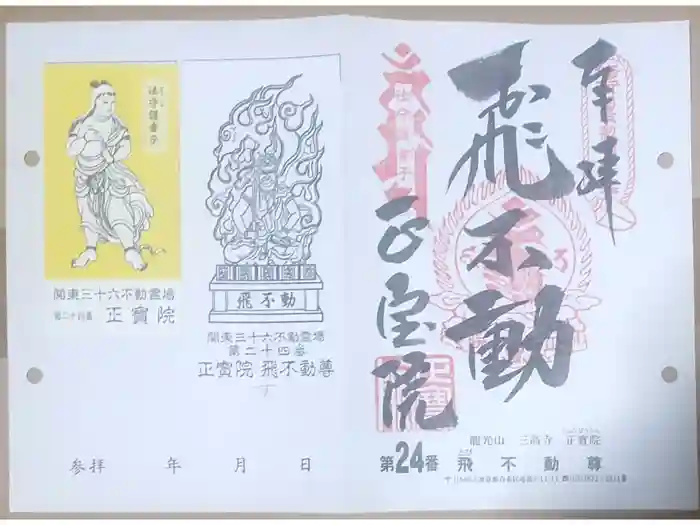 奉拝
飛不動
正宝院
龍光山 三高寺 正寶院
第24番 飛不動尊
法守護童子
関東三十六不動霊場
第二十四番 正寶院
飛不動
関東三十六不動霊場
第二十四番
正寶院 飛不動尊
参拝 年 月 日